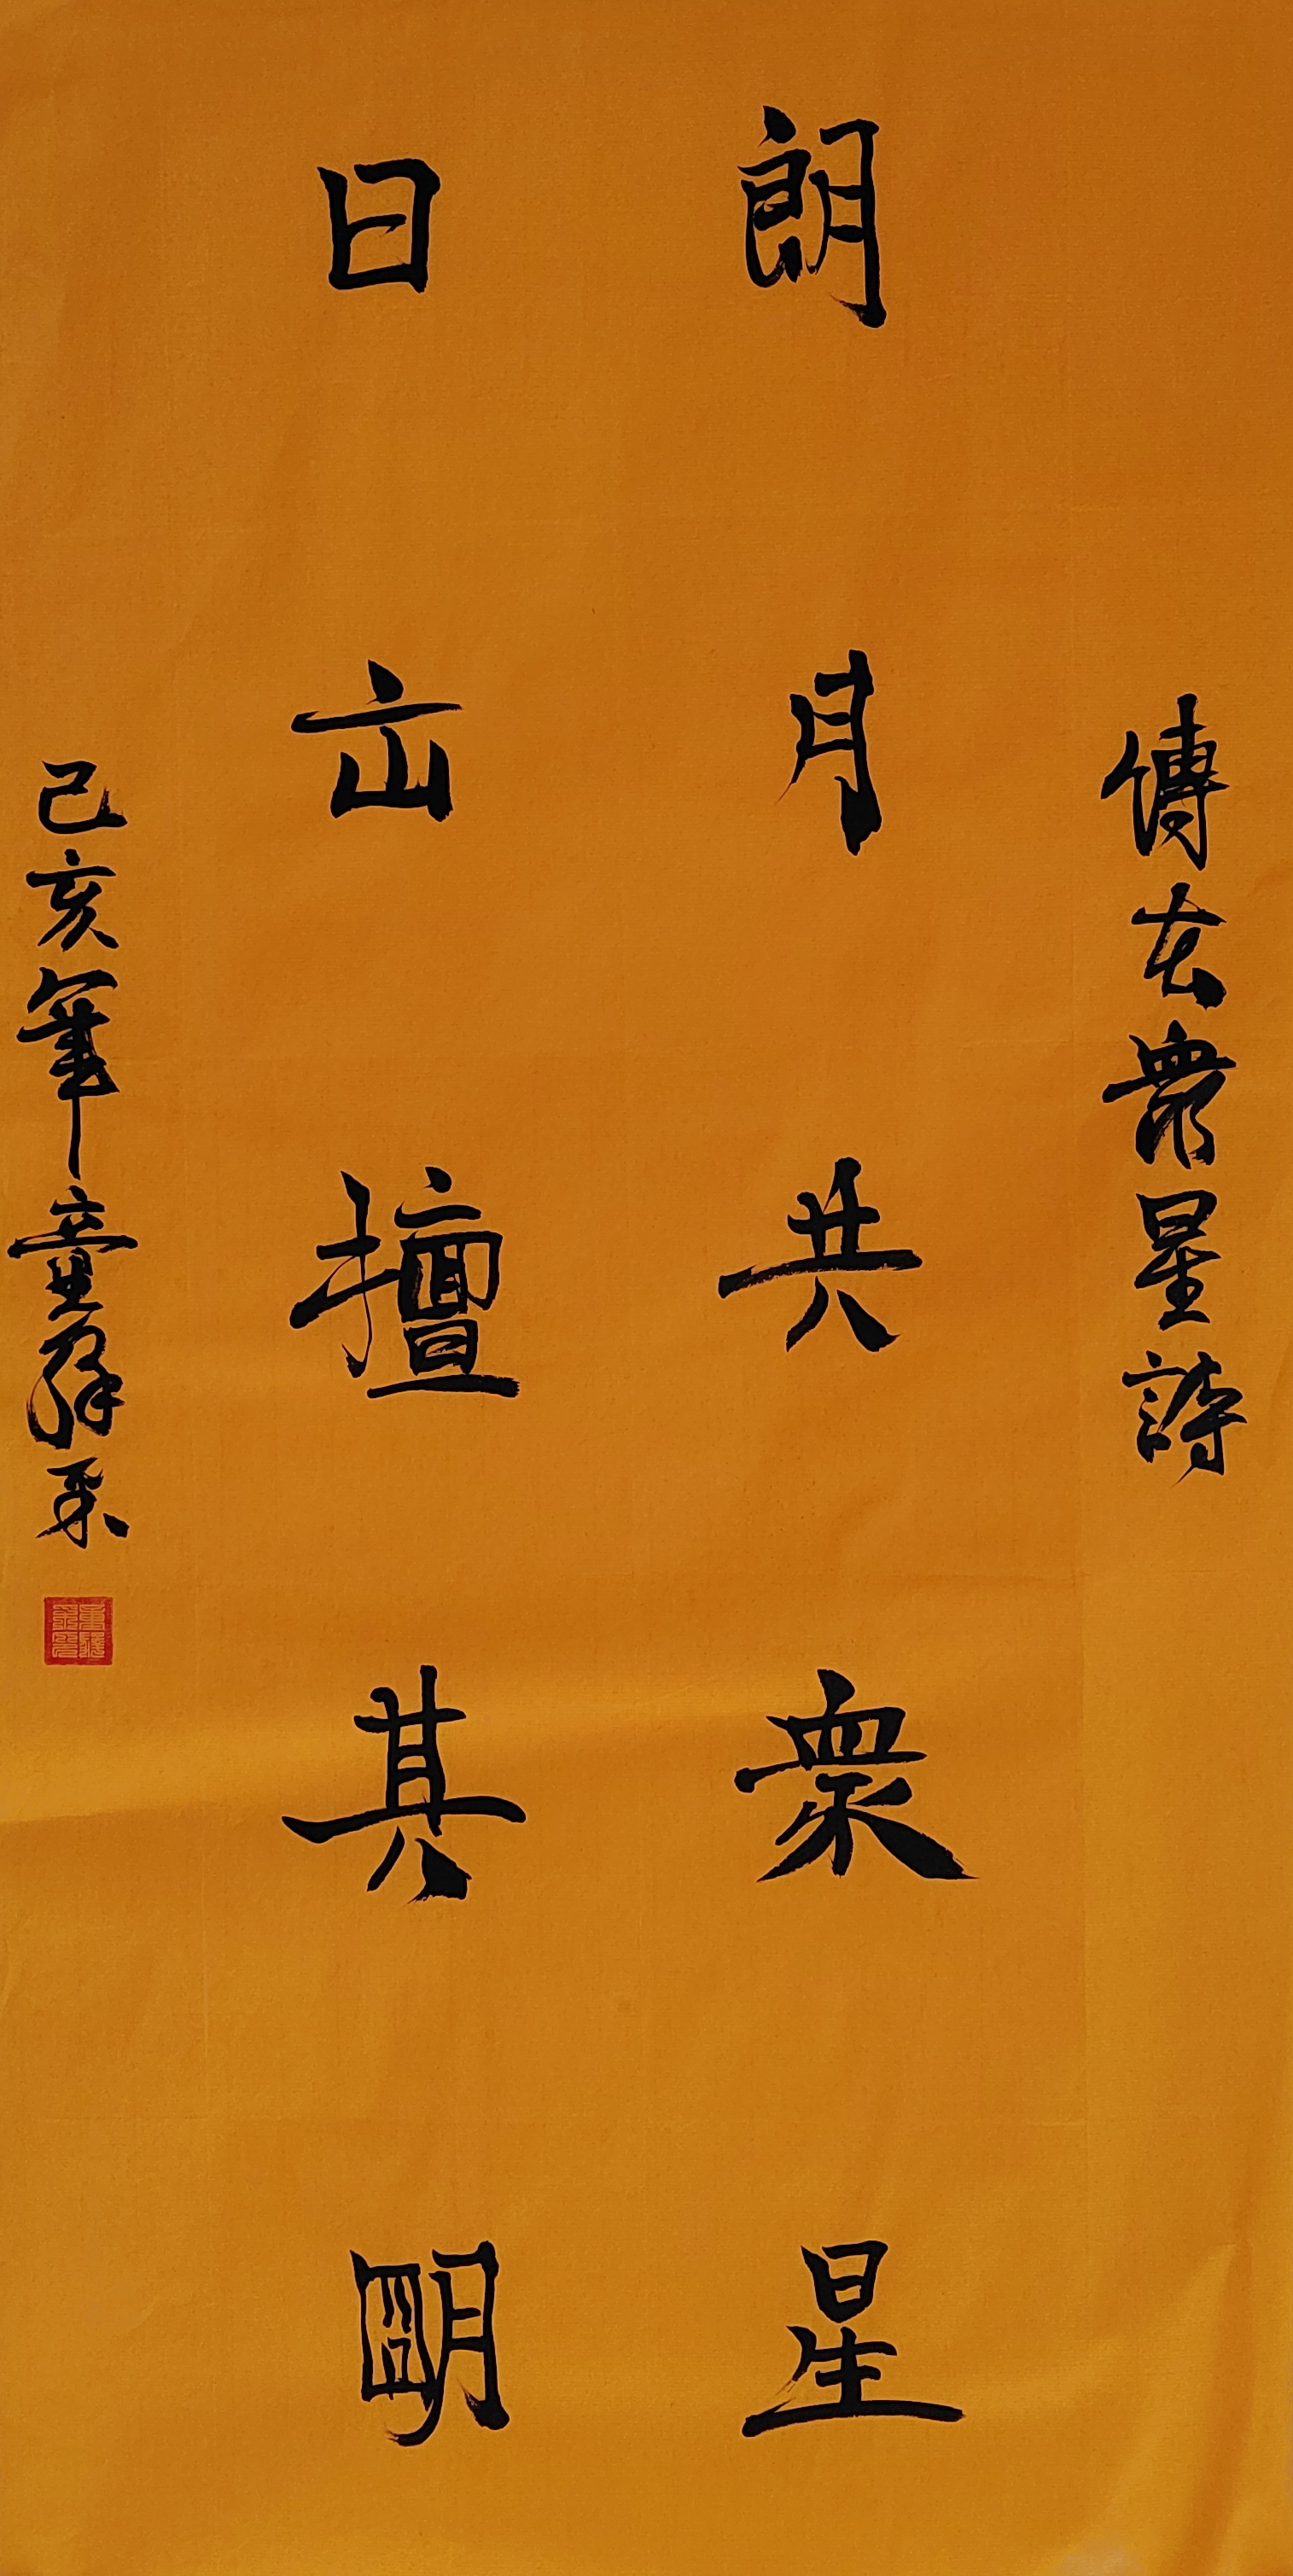 傅玄衆星詩
朗月共衆星
日出擅其朙
己亥年童